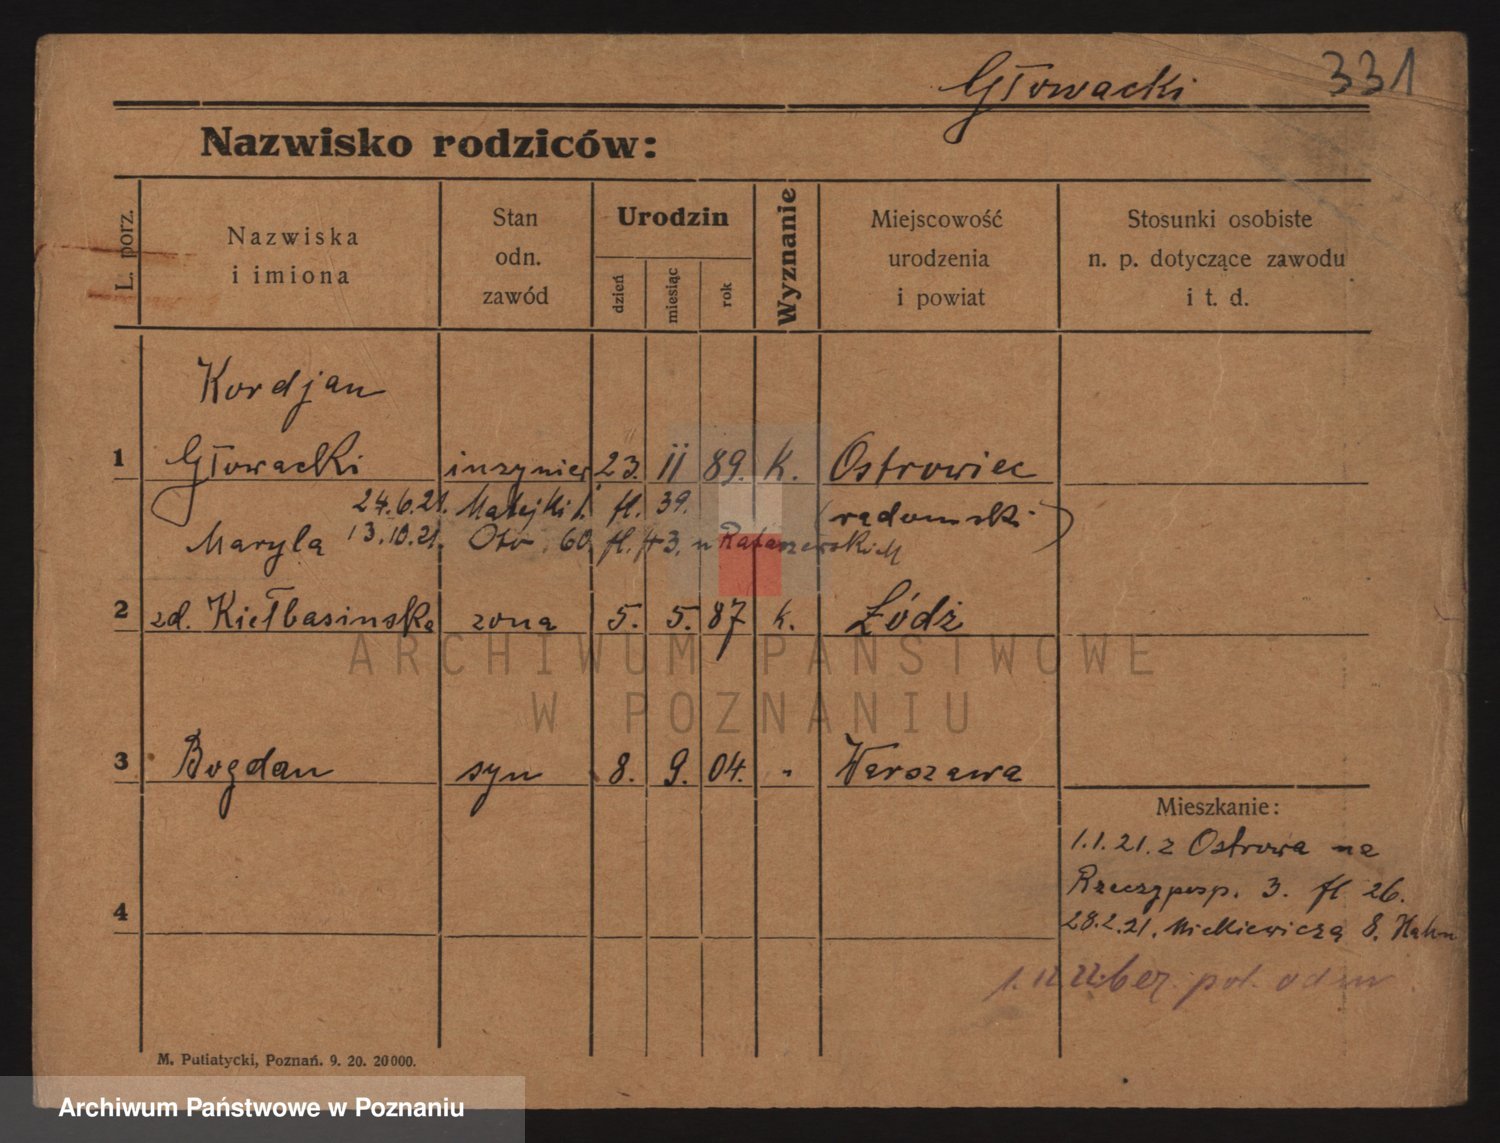 Głowacki 331
Nazwisko rodziców:
L. porz.
Nazwiska
i imiona
Stan
odn.
zawód
Urodzin
dzień
miesiąc
rok
Wyznanie
Miejscowość
urodzenia
i powiat
Stosunki osobiste
n. p. dotyczące zawodu
i t. d.
Kordjan
1 Głowacki inzynier 23. II 89. K. Ostrowiec
24.6.21. Matejki fl. 39. (radomski)
Maryla 13.10.21. 60 fl. 43. u Rataszewskich
2 zd. Kiełbasinska zona 5. 5. 87 k. Łódż
ARCHIWUM PAŃSTWOWE
W POZNANIU
3 Bogdan syn 8. 9. 04. " Warszawa
Mieszkanie:
1.1.21. z Ostrowa na
Rzeczyposp. 3. fl 26.
4
28.2.21. Mickiewicza 8. Hahn
bez pol. odm
M. Putiatycki, Poznań. 9. 20. 20000.
Archiwum Państwowe w Poznaniu